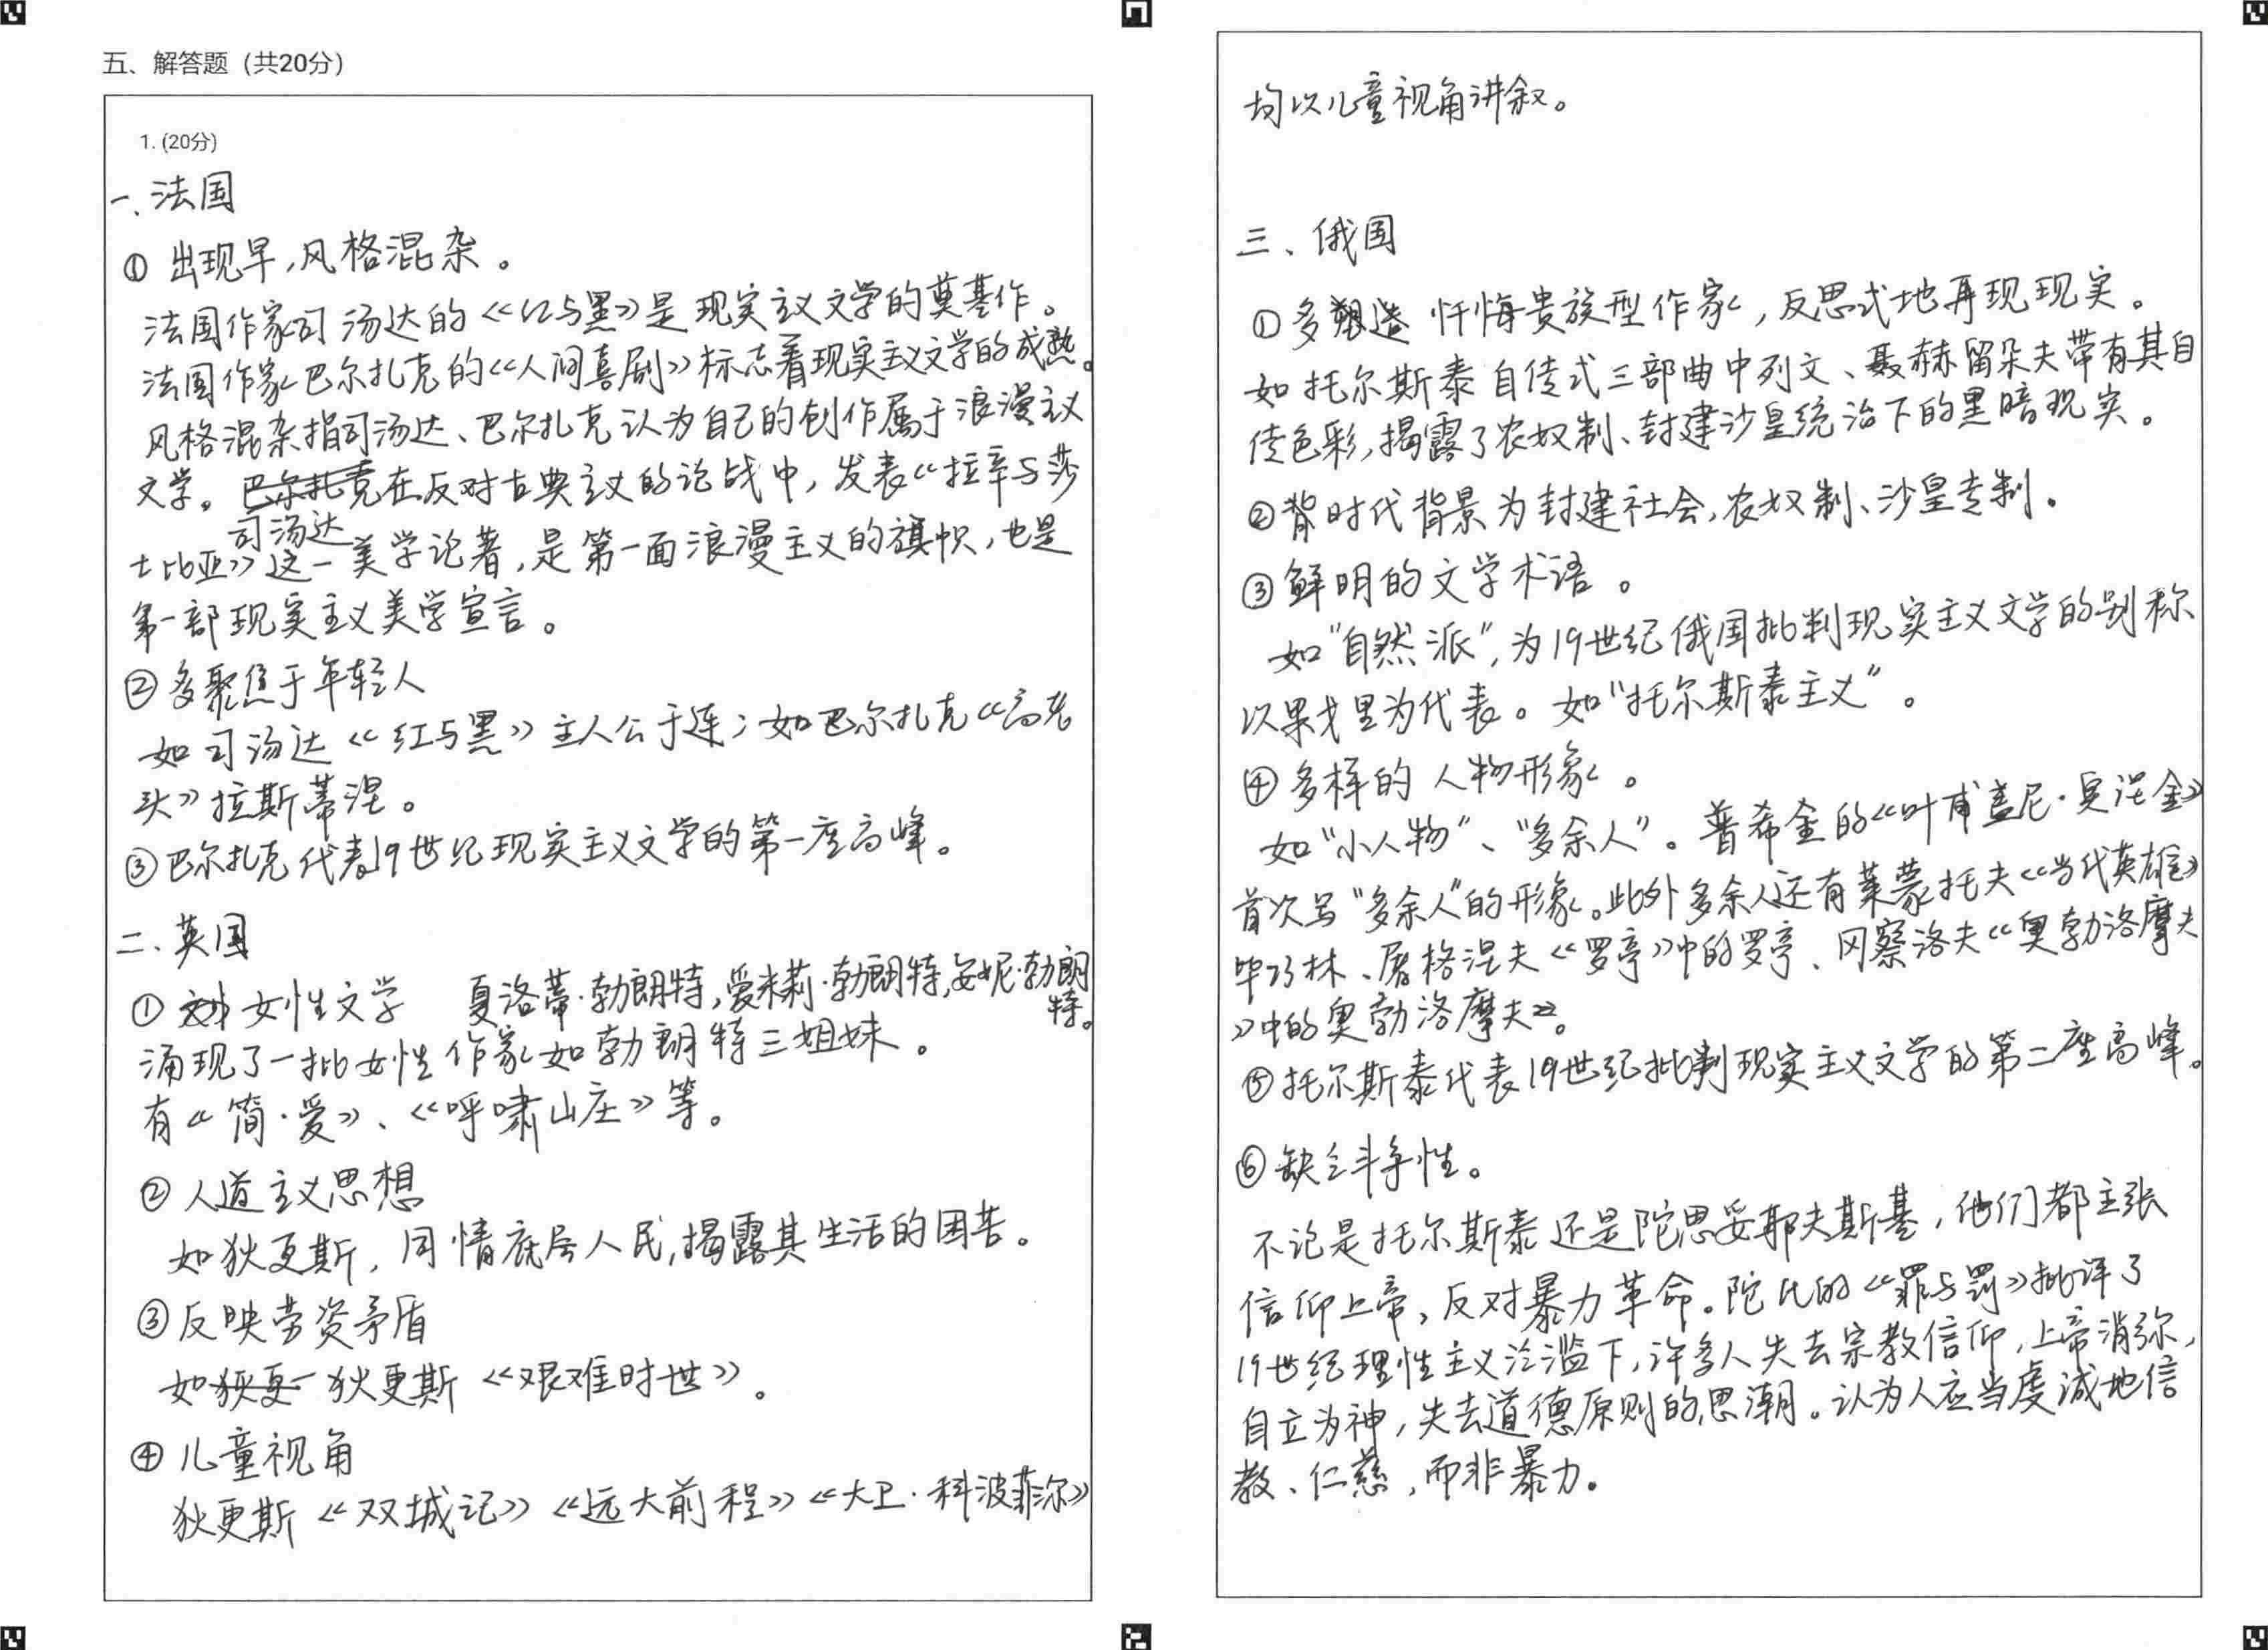 五、解答题（共20分）
1. (20分)
一、法国
① 出现早,风格混杂。
法国作家司汤达的《红与黑》是现实主义文学的奠基作。
法国作家巴尔扎克的《人间喜剧》标志着现实主义文学的成熟。
风格混杂指司汤达、巴尔扎克认为自己的创作属于浪漫主义
文学。巴尔扎克在反对古典主义的论战中，发表《拉辛与莎
司汤达
士比亚》这一美学论著,是第一面浪漫主义的旗帜,也是
第一部现实主义美学宣言。
② 多聚焦于年轻人
如司汤达《红与黑》主人公于连；如巴尔扎克《高老
头》拉斯蒂涅。
③ 巴尔扎克代表19世纪现实主义文学的第一座高峰。
二、英国
① 女性文学 夏洛蒂·勃朗特,爱米莉·勃朗特,安妮·勃朗
特。
涌现了一批女性作家如勃朗特三姐妹。
有《简·爱》、《呼啸山庄》等。
② 人道主义思想
如狄更斯，同情底层人民,揭露其生活的困苦。
③ 反映劳资矛盾
如狄更 狄更斯《艰难时世》。
④ 儿童视角
狄更斯《双城记》《远大前程》《大卫·科波菲尔》
均以儿童视角讲叙。
三、俄国
① 多塑造 忏悔贵族型作家，反思式地再现现实。
如托尔斯泰自传式三部曲中列文、聂赫留朵夫带有其自
传色彩,揭露了农奴制、封建沙皇统治下的黑暗现实。
② 背时代背景为封建社会,农奴制、沙皇专制。
③ 鲜明的文学术语。
如“自然派”,为19世纪俄国批判现实主义文学的别称
以果戈里为代表。如“托尔斯泰主义”。
④ 多样的人物形象。
如“小人物”、“多余人”。普希金的《叶甫盖尼·奥涅金》
首次写“多余人”的形象。此外多余人还有莱蒙托夫《当代英雄》
毕巧林、屠格涅夫《罗亭》中的罗亭、冈察洛夫《奥勃洛摩夫
》中的奥勃洛摩夫》。
⑤ 托尔斯泰代表19世纪批判现实主义文学的第二座高峰。
⑥ 缺乏斗争性。
不论是托尔斯泰还是陀思妥耶夫斯基，他们都主张
信仰上帝，反对暴力革命。陀氏的《罪与罚》批评了
19世纪理性主义泛滥下,许多人失去宗教信仰,上帝消弥,
自立为神，失去道德原则的思潮。认为人应当虔诚地信
教、仁慈，而非暴力。